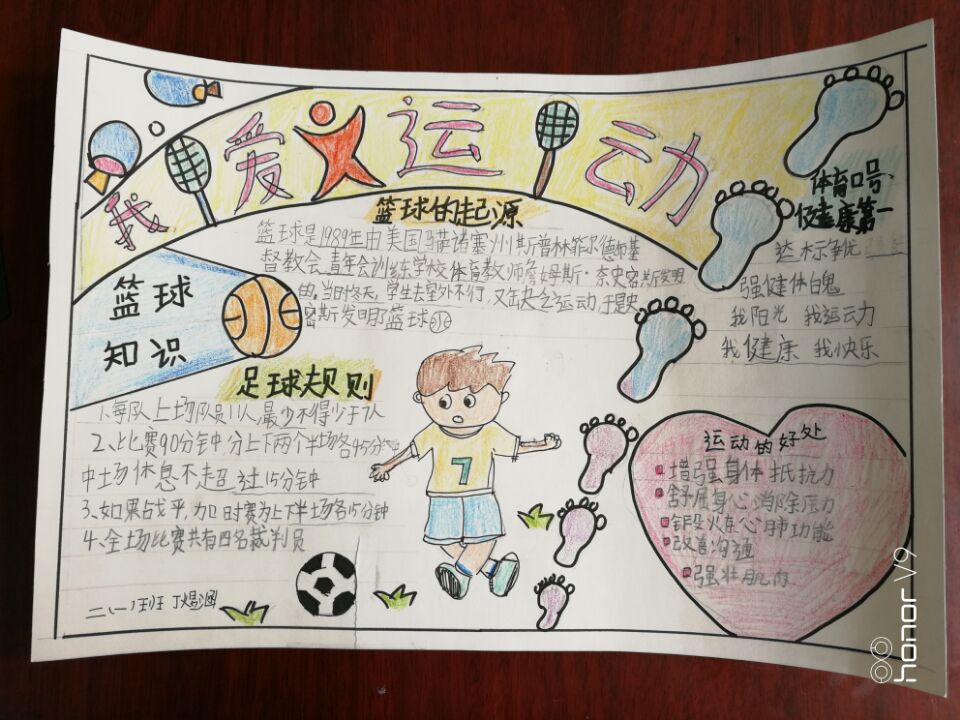 我爱运动
篮球的起源
篮球是1989年由美国马萨诸塞州斯普林菲尔德市基
督教会青年会训练学校体育教师詹姆斯·奈史密斯发明
的。当时冬天,学生去室外不行,又缺乏运动,于是史
密斯发明了篮球
篮球
知识
足球规则
1、每队上场队员11人,最少不得少于7人
2、比赛90分钟,分上下两个半场各45分钟
中场休息不超过15分钟
3、如果战平,加时赛为上下半场各15分钟
4、全场比赛共有四名裁判员
二(一)班
体育口号
健康第一
达标争优
强健体魄
我阳光 我运动
我健康 我快乐
运动的好处
增强身体抵抗力
舒展身心消除压力
锻炼心肺功能
改善沟通
强壮肌肉
7
honor V9